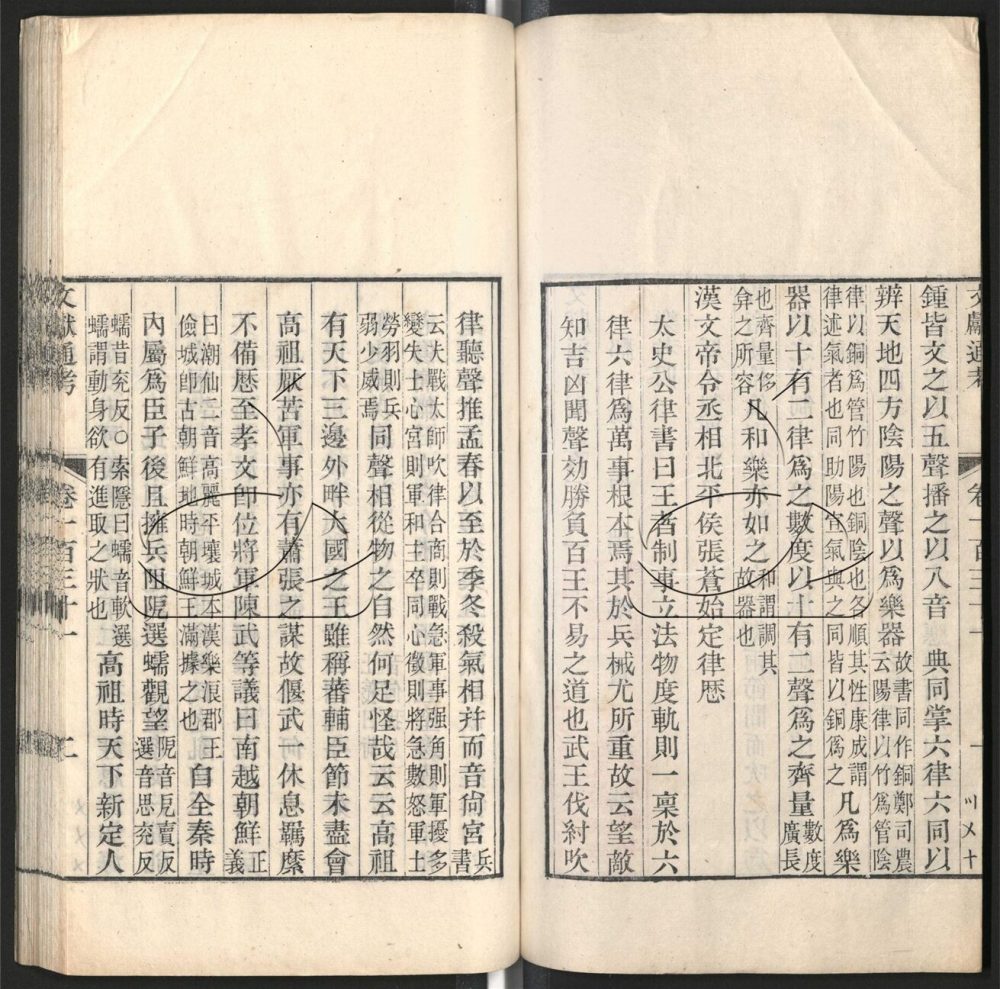 文獻通考
卷一百三十一
一
鍾皆文之以五聲播之以八音 典同掌六律六同以
辨天地四方陰陽之聲以爲樂器故書同作銅鄭司農云陽律以竹爲管陰
律以銅爲管竹陽也銅陰也各順其性康成謂律述氣者也同助陽宣氣與之同皆以銅爲之凡爲樂
器以十有二律爲之數度以十有二聲爲之齊量數度廣長
也齊量侈弇之所容凡和樂亦如之和謂調其故器也
漢文帝令丞相北平侯張蒼始定律厯
太史公律書曰王者制事立法物度軌則一稟於六
律六律爲萬事根本焉其於兵械尤所重故云望敵
知吉凶聞聲効勝負百王不易之道也武王伐紂吹
律聽聲推孟春以至於季冬殺氣相并而音尙宮兵書
云夫戰太師吹律合商則戰急軍事强角則軍擾多變失士心宮則軍和主卒同心徵則將急數怒軍士
勞羽則兵弱少威焉同聲相從物之自然何足怪哉云云高祖
有天下三邊外畔大國之王雖稱蕃輔臣節未盡會
高祖厭苦軍事亦有蕭張之謀故偃武一休息羈縻
不備厯至孝文卽位將軍陳武等議曰南越朝鮮正義
曰潮仙二音高麗平壤城本漢樂浪郡王儉城卽古朝鮮地時朝鮮王滿據之也自全秦時
內屬爲臣子後且擁兵阻阸選蠕觀望阸音厄賣反選音思兖反
蠕昔兖反○索隱曰蠕音軟選蠕謂動身欲有進取之狀也高祖時天下新定人
文獻通考
卷一百三十一
二